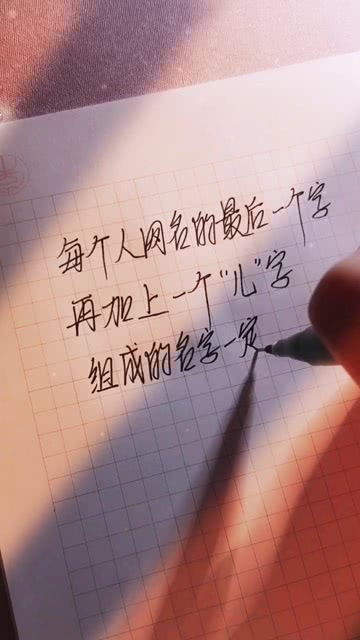 每个人网名的最后一个字
再加上一个"儿"字
组成的名字一定